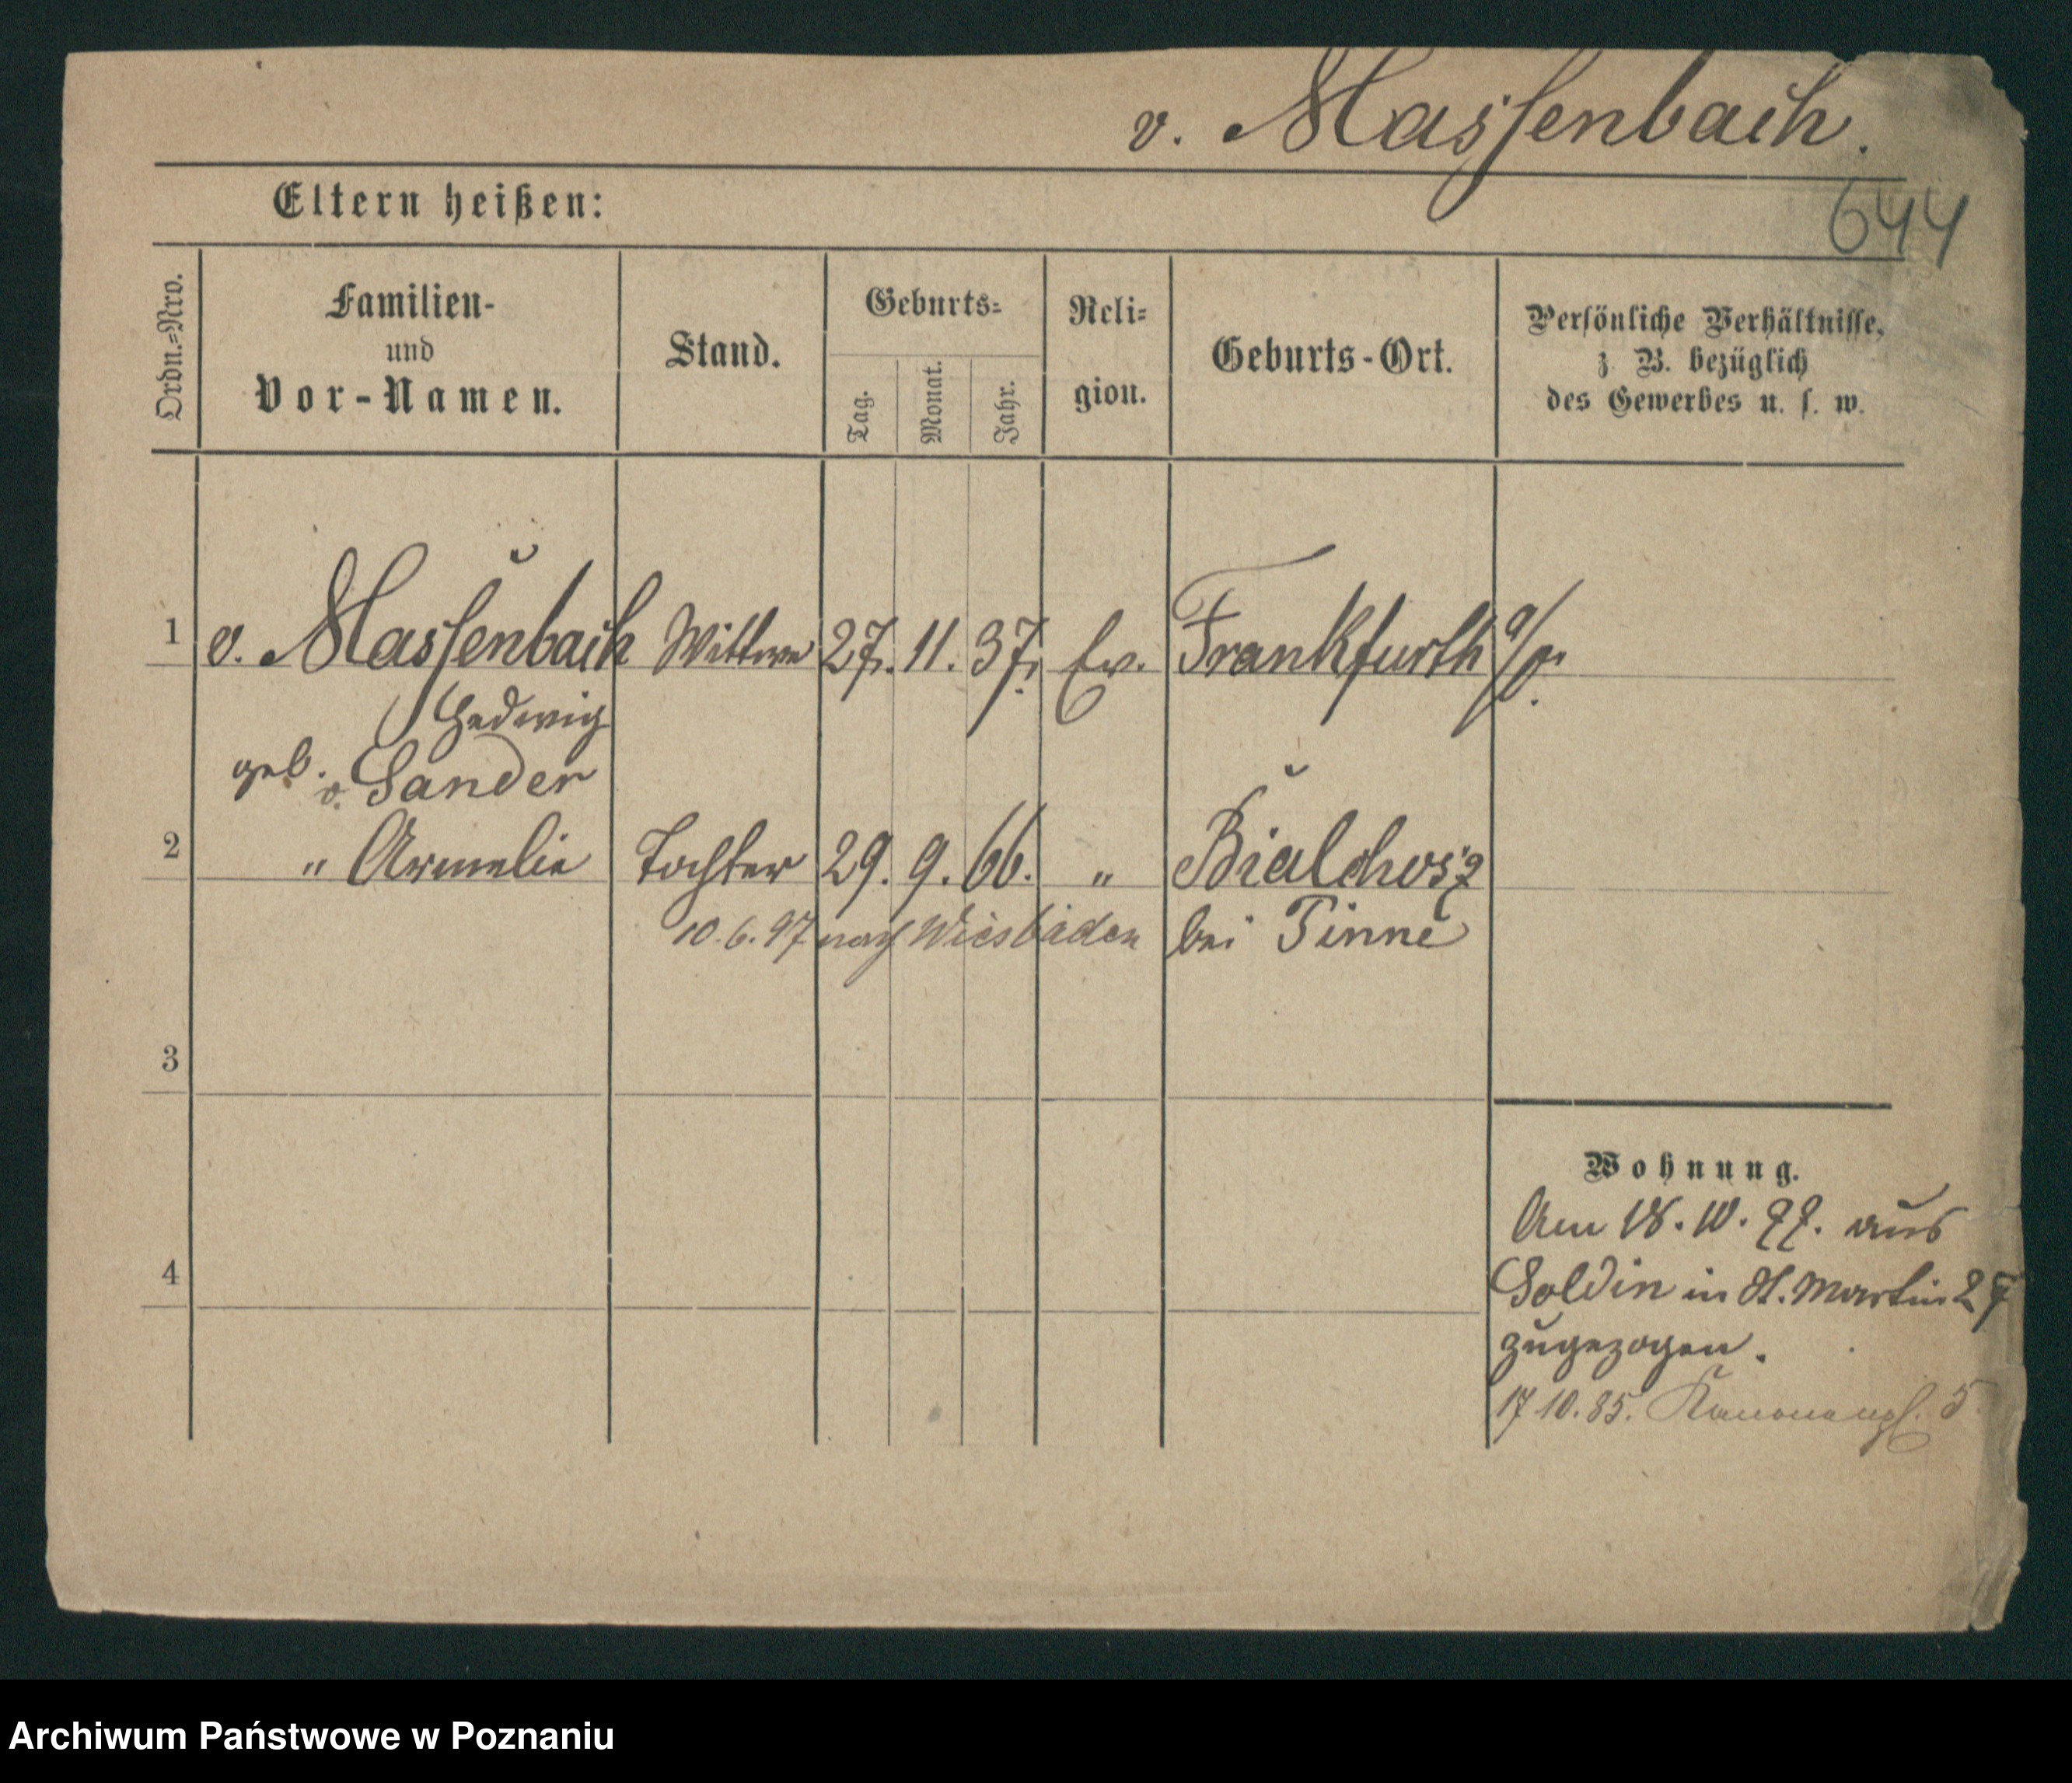 v. Massenbach.
Eltern heißen:
644
Ordn.=Nro.
Familien-
und
Vor-Namen.
Stand.
Geburts=
Tag.
Monat.
Jahr.
Reli=
gion.
Geburts-Ort.
Persönliche Verhältnisse,
z. B. bezüglich
des Gewerbes u. s. w.
1 v. Massenbach Wittwe 27. 11. 37. Ev. Frankfurth a/O.
Hedwig
geb. v. Sander
2 " Armelie Tochter 29. 9. 66. " Bialchosz
10. 6. 97 nach Wiesbaden bei Pinne
3
Wohnung.
Am 18. 10. 77. aus
4
Soldin in St. Martin 27
zugezogen.
17 10. 85. Kanonenpl. 5.
Archiwum Państwowe w Poznaniu